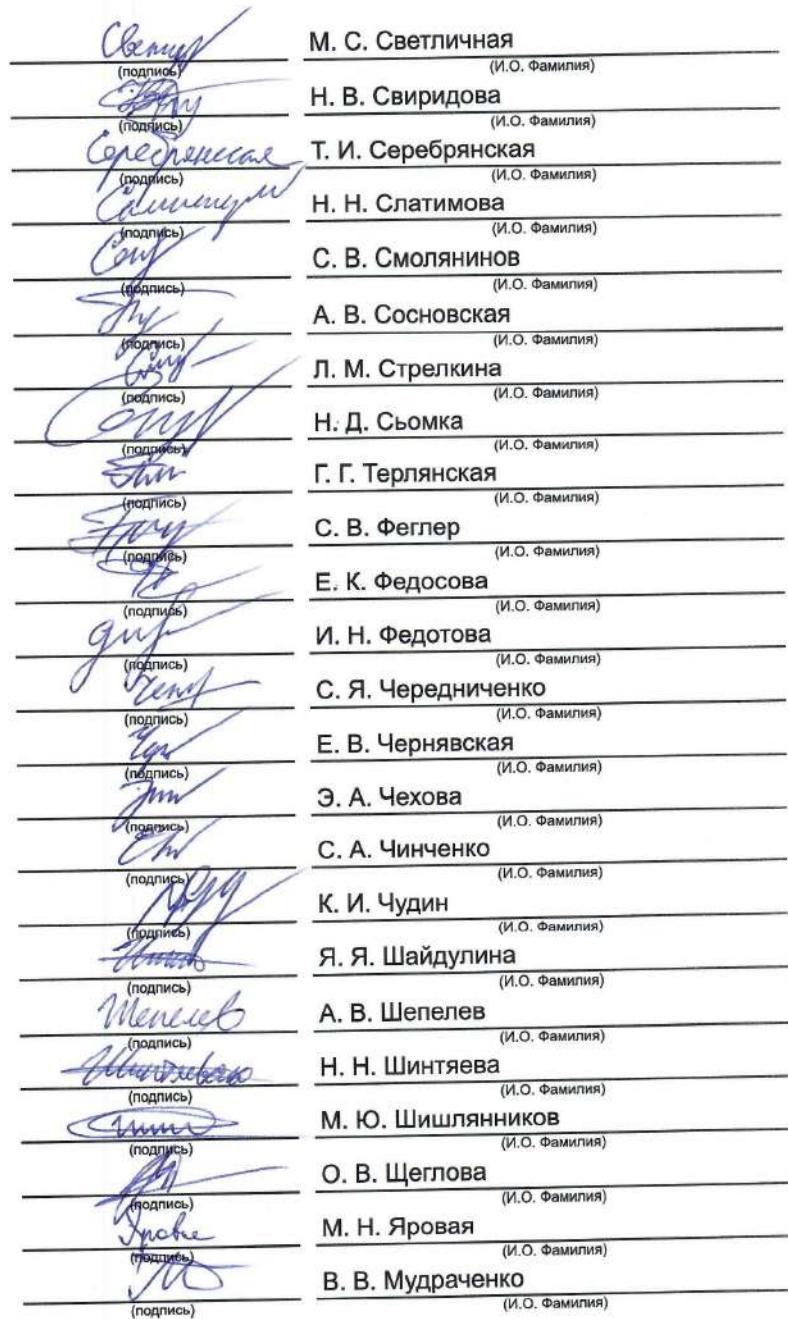 М. С. Светличная
(подпись) (И.О. Фамилия)
Н. В. Свиридова
(подпись) (И.О. Фамилия)
Серебрянская Т. И. Серебрянская
(подпись) (И.О. Фамилия)
Н. Н. Слатимова
(подпись) (И.О. Фамилия)
С. В. Смолянинов
(подпись) (И.О. Фамилия)
А. В. Сосновская
(подпись) (И.О. Фамилия)
Л. М. Стрелкина
(подпись) (И.О. Фамилия)
Н. Д. Сьомка
(подпись) (И.О. Фамилия)
Г. Г. Терлянская
(подпись) (И.О. Фамилия)
С. В. Феглер
(подпись) (И.О. Фамилия)
Е. К. Федосова
(подпись) (И.О. Фамилия)
И. Н. Федотова
(подпись) (И.О. Фамилия)
С. Я. Чередниченко
(подпись) (И.О. Фамилия)
Е. В. Чернявская
(подпись) (И.О. Фамилия)
Э. А. Чехова
(подпись) (И.О. Фамилия)
С. А. Чинченко
(подпись) (И.О. Фамилия)
К. И. Чудин
(подпись) (И.О. Фамилия)
Я. Я. Шайдулина
(подпись) (И.О. Фамилия)
Шепелев А. В. Шепелев
(подпись) (И.О. Фамилия)
Н. Н. Шинтяева
(подпись) (И.О. Фамилия)
М. Ю. Шишлянников
(подпись) (И.О. Фамилия)
О. В. Щеглова
(подпись) (И.О. Фамилия)
М. Н. Яровая
(подпись) (И.О. Фамилия)
В. В. Мудраченко
(подпись) (И.О. Фамилия)